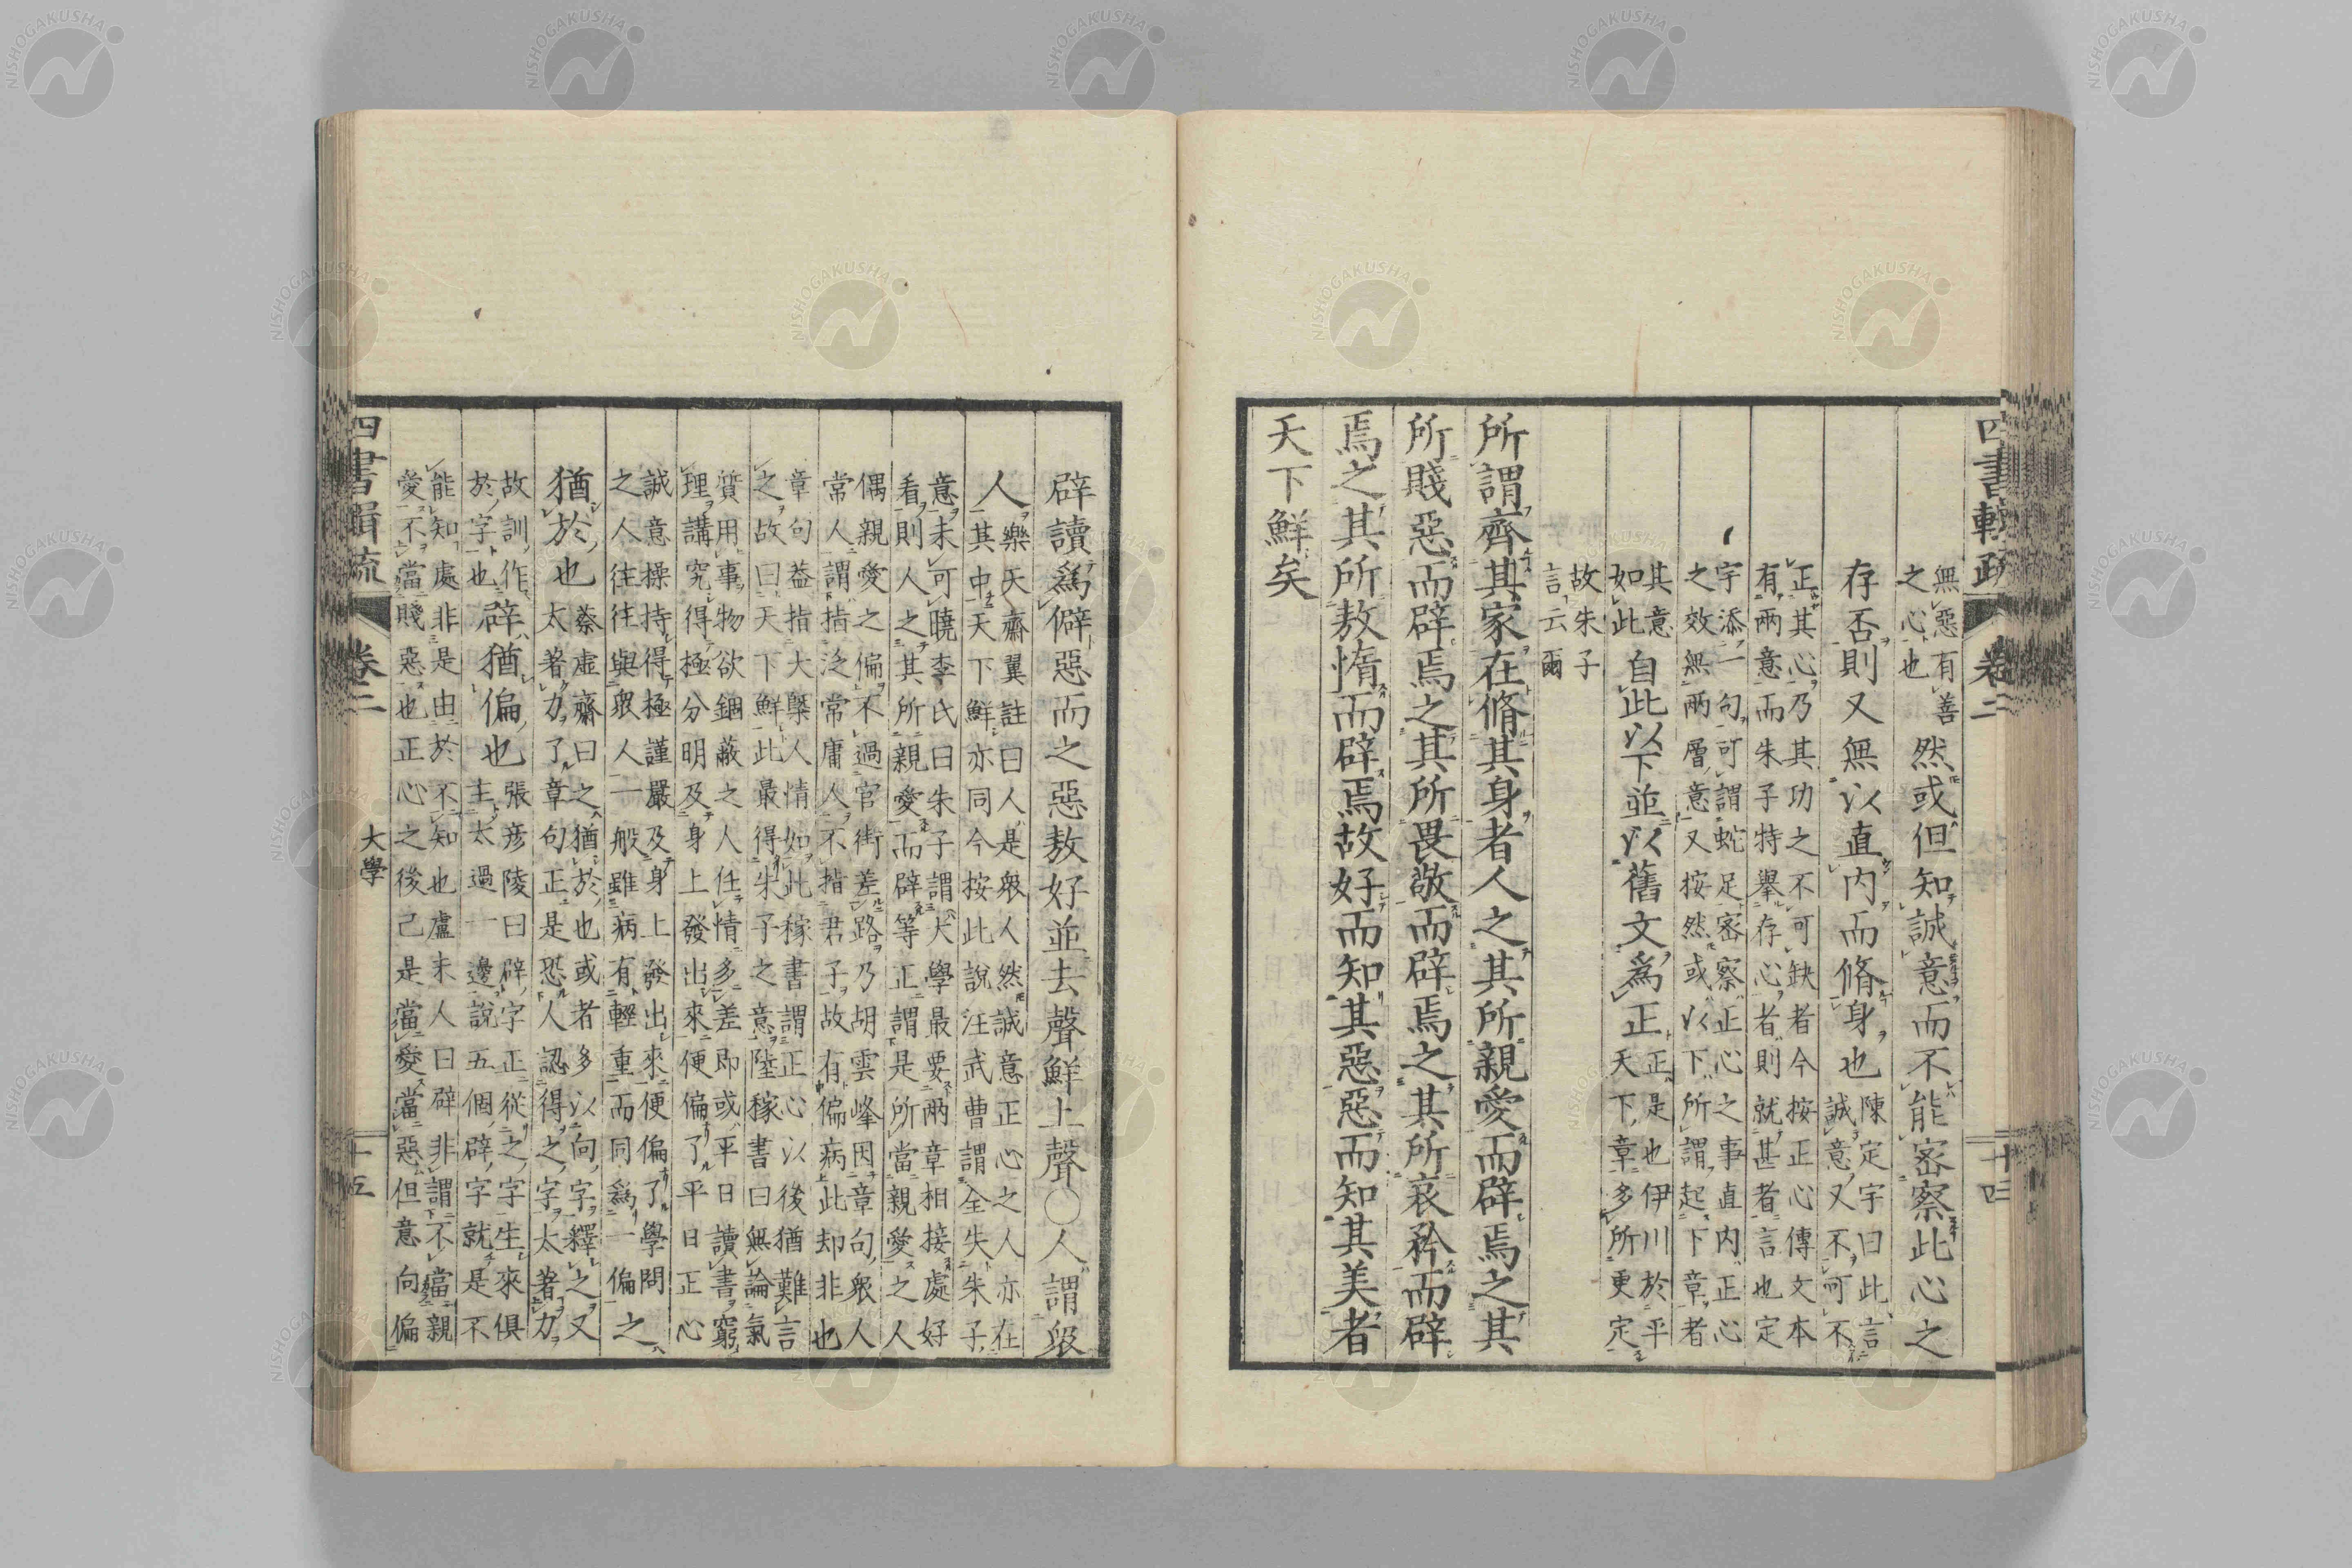 四書輯疏 卷二 十四
無惡有善
之心也
然或但知誠意而不能密察此心之
存否則又無以直內而脩身也
陳定宇曰此言
誠意又不可不
正其心乃其功之不可缺者今按正心傳文本
有兩意而朱子特舉存心者則就甚者言也定
宇添一句可謂蛇足密察正心之事直內正心
之效無兩層意又按然或以下所謂起下章者
其意
如此
自此以下並以舊文爲正
正是也伊川於平
天下章多所更定
故朱子
言云爾
所謂齊其家在脩其身者人之其所親愛而辟焉之其
所賤惡而辟焉之其所畏敬而辟焉之其所哀矜而辟
焉之其所敖惰而辟焉故好而知其惡惡而知其美者
天下鮮矣
辟讀爲僻惡而之惡敖好並去聲鮮上聲○人謂衆
人
樂天齋翼註曰人是衆人然誠意正心之人亦在
其中天下鮮亦同今按此說汪武曹謂全失朱子
意未可曉李氏曰朱子謂大學最要兩章相接處好
看則人之其所親愛而辟等正謂是所當親愛之人
偶親愛之偏不過官街差路乃胡雲峰因章句衆人
常人謂指泛常庸人不指君子故有偏病此却非也
章句益指大槩人情如此稼書謂正心以後猶難言
之故曰天下鮮此最得朱子之意陸稼書曰無論氣
質用事物欲錮蔽之人任情多差即或平日讀書窮
理講究得極分明及身上發出來便偏了平日正心
誠意操持得極謹嚴及身上發出來便偏了學問
之人往往與衆人一般雖病有輕重而同爲一偏
之
猶於也
蔡虛齋曰之猶於也或者多以向字釋之又
太著力了章句正是恐人認得之字太著力
故訓作
於字也
辟猶偏也
張彥陵曰辟字正從之字生來俱
主太過一邊說五個辟字就是不
能知處非是由於不知也盧未人曰辟非謂不當親
愛不當賤惡也正心之後己是當愛當惡但意向偏
四書輯疏 卷二 大學 十五
NISHOGAKUSHA